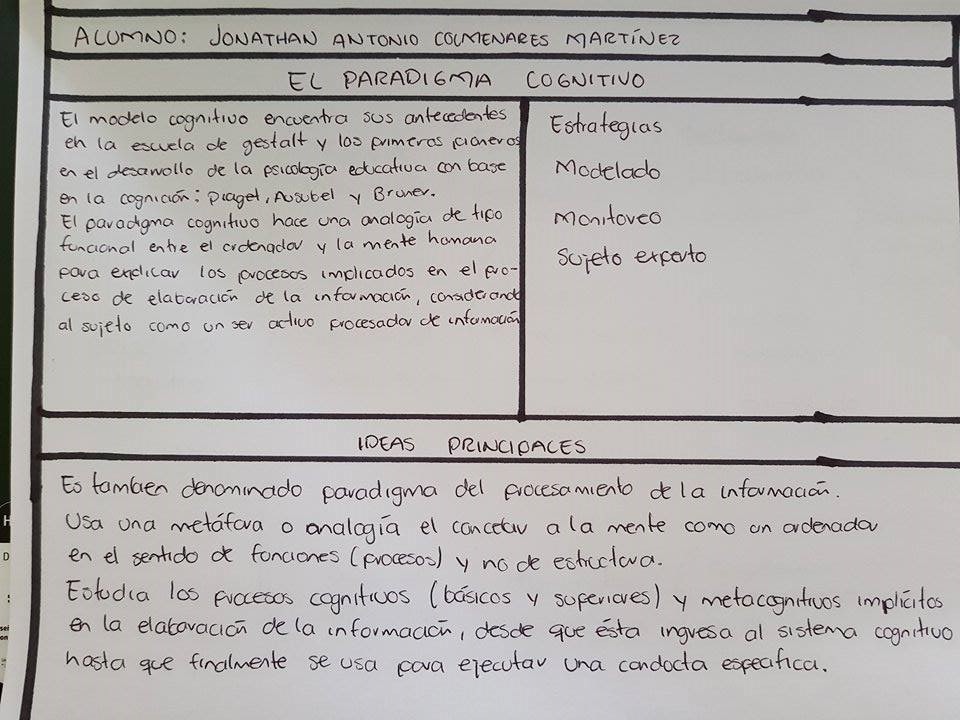 ALUMNO: JONATHAN ANTONIO COLMENARES MARTÍNEZ
EL PARADIGMA COGNITIVO
El modelo cognitivo encuentra sus antecedentes
en la escuela de gestalt y los primeros pioneros
en el desarrollo de la psicología educativa con base
en la cognición: Piaget, Ausubel y Bruner.
El paradigma cognitivo hace una analogía de tipo
funcional entre el ordenador y la mente humana
para explicar los procesos implicados en el pro-
ceso de elaboración de la información, considerando
al sujeto como un ser activo procesador de información
Estrategias
Modelado
Monitoreo
Sujeto experto
IDEAS PRINCIPALES
Es tambien denominado paradigma del procesamiento de la información.
Usa una metáfora o analogía el concebir a la mente como un ordenador
en el sentido de funciones (procesos) y no de estructura.
Estudia los procesos cognitivos (básicos y superiores) y metacognitivos implícitos
en la elaboración de la información, desde que ésta ingresa al sistema cognitivo
hasta que finalmente se usa para ejecutar una conducta especifica.